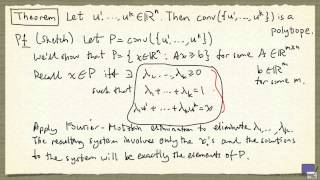 Theorem Let u¹,…,uᵏ ∈ ℝⁿ. Then conv({u¹,…,uᵏ}) is a
polytope.
Pf (sketch) Let P = conv({u¹,…,uᵏ})
We'll show that P = {x ∈ ℝⁿ : Ax ≥ b} for some A ∈ ℝᵐˣⁿ
b ∈ ℝᵐ
for some m.
Recall x ∈ P iff ∃ λ₁,…,λₖ ≥ 0
such that λ₁ + … + λₖ = 1
λ₁u¹ + … + λₖuᵏ = x
Apply Fourier-Motzkin elimination to eliminate λ₁,…,λₖ.
The resulting system involves only the xᵢ's and the solutions
to the system will be exactly the elements of P.